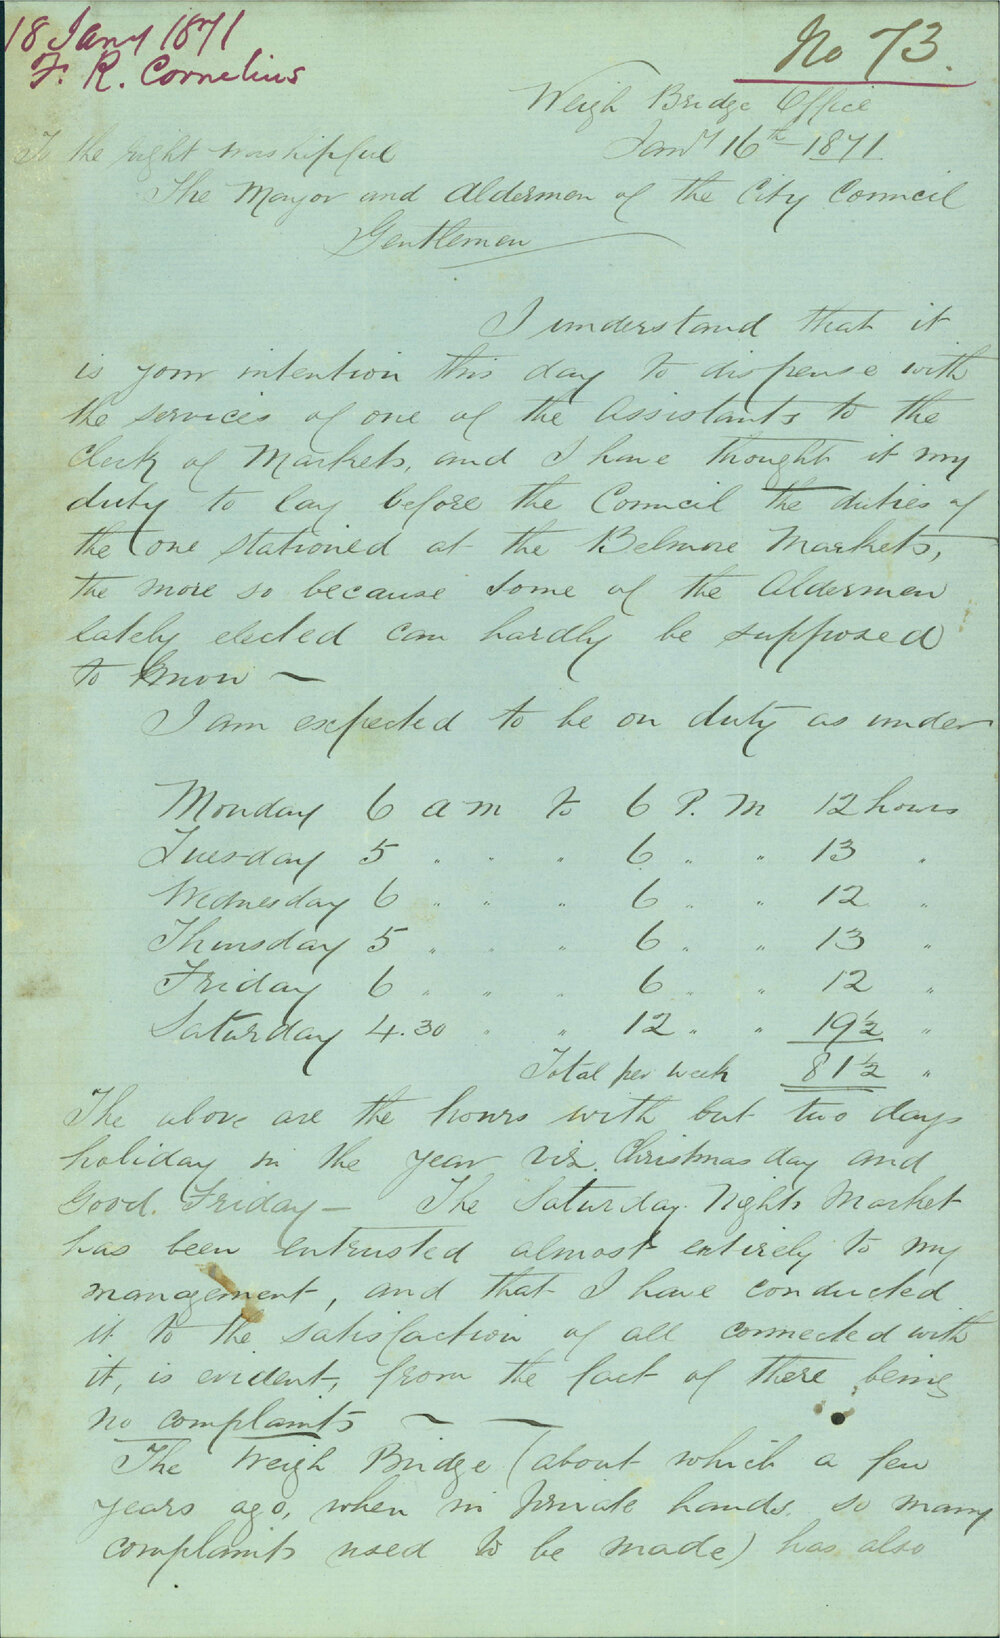 18 Jany 1871
F. R. Cornelius
No 73.
Weigh Bridge Office
Jany 16th 1871
To the right worshipful
The Mayor and Aldermen of the City Council
Gentlemen
I understand that it
is your intention this day to dispense with
the services of one of the Assistants to the
Clerk of Markets, and I have thought it my
duty to lay before the Council the duties of
the one stationed at the Belmore Markets,
the more so because some of the Aldermen
lately elected can hardly be supposed
to know —
I am expected to be on duty as under
Monday 6 a m to 6 P. M 12 hours
Tuesday 5 " " " 6 " " 13 "
Wednesday 6 " " " 6 " " 12 "
Thursday 5 " " " 6 " " 13 "
Friday 6 " " " 6 " " 12 "
Saturday 4.30 " " 12 " " 19½ "
Total per week 81½ "
The above are the hours with but two days
holiday in the year viz. Christmas day and
Good Friday — The Saturday Nights Market
has been entrusted almost entirely to my
management, and that I have conducted
it to the satisfaction of all connected with
it, is evident, from the fact of there being
no complaints — —
The Weigh Bridge (about which a few
years ago, when in private hands, so many
complaints used to be made) has also